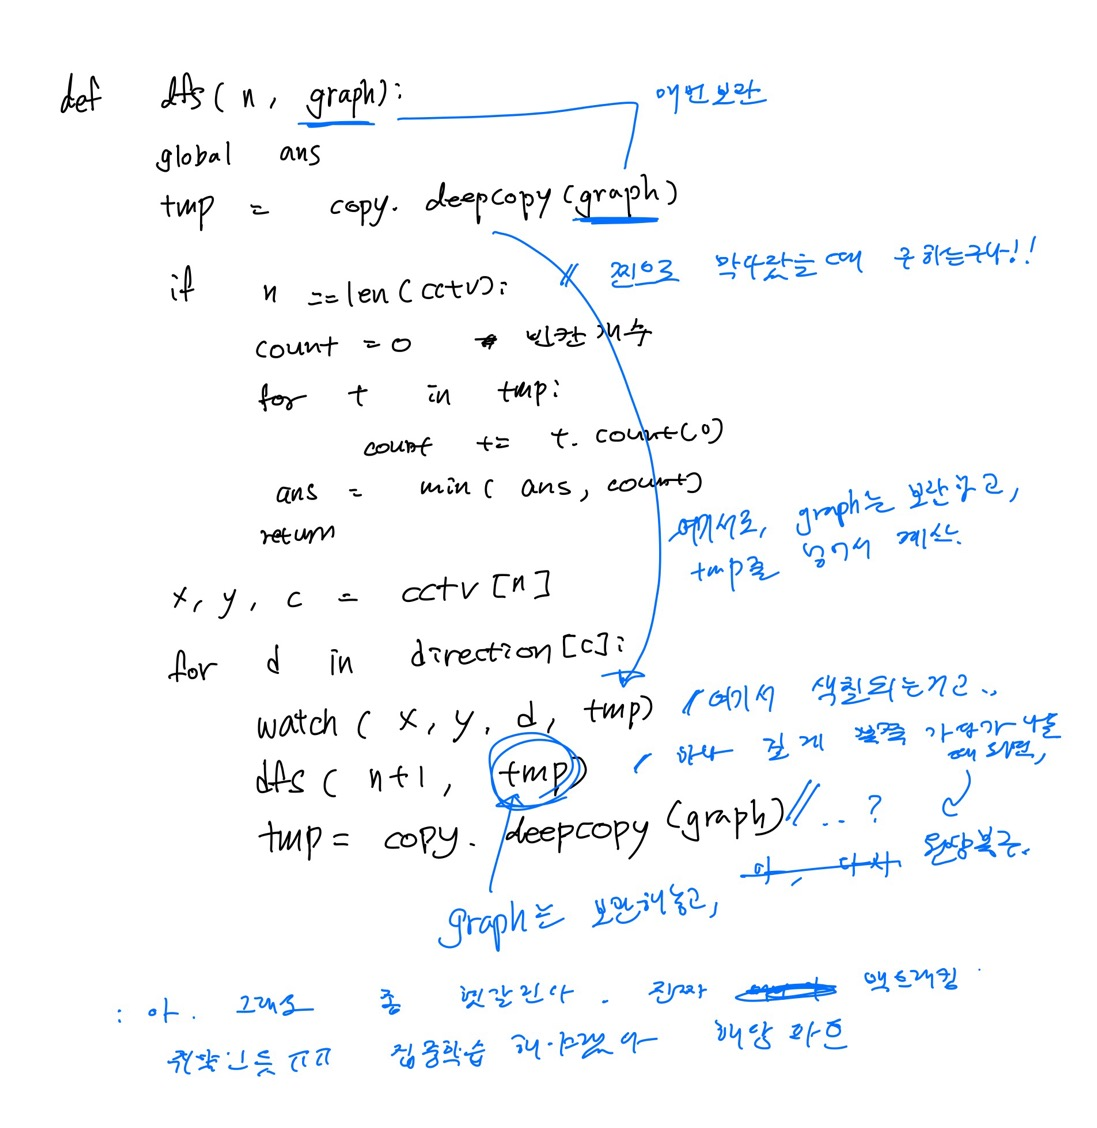 def dfs(n, graph):
매번보관
global ans
tmp = copy. deepcopy(graph)
if n ==len(cctv):
// 찐으로 막다랐을때 구하는구나!!
count = 0 빈칸개수
for t in tmp:
count += t. count(0)
ans = min( ans, count)
return
여기서도, graph는 보관하고,
tmp를 넣어서 계산.
x, y, c = cctv [n]
for d in direction[c]:
watch( x, y, d, tmp) // 여기서 색칠되는거고..
dfs( n+1, tmp)
길게 쭉쭉
tmp = copy. deepcopy (graph) // .. ?
원상복구.
graph는 보관해놓고,
: 아. 그래도 좀 헷갈린다. 진짜 백트래킹
취약인듯 ㅠㅠ 집중학습 해야겠다 해당 파트